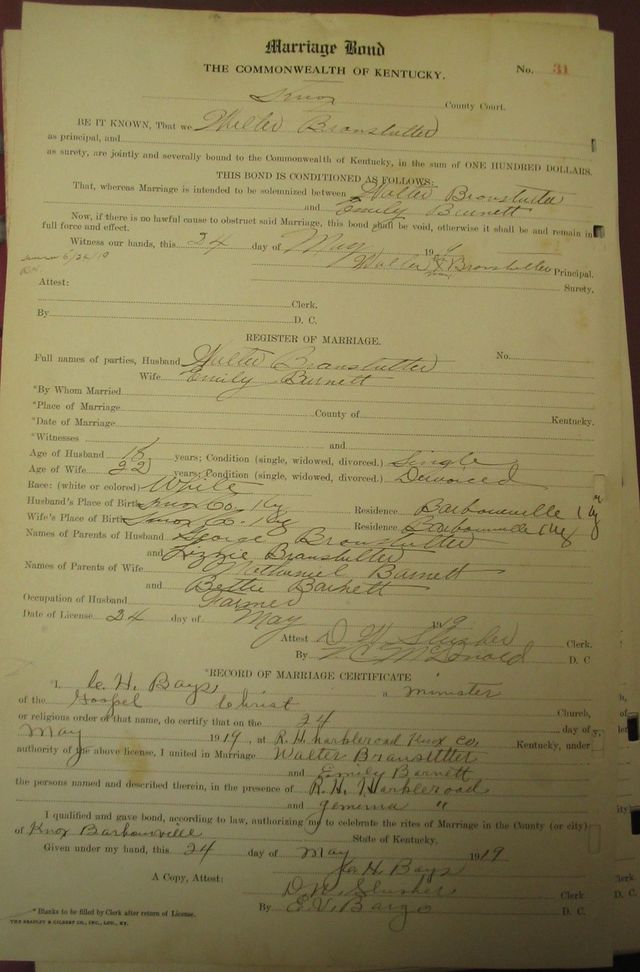 Marriage Bond
THE COMMONWEALTH OF KENTUCKY. No. 31
Knox County Court.
BE IT KNOWN, That we Walter Branstutter
as principal, and
as surety, are jointly and severally bound to the Commonwealth of Kentucky, in the sum of ONE HUNDRED DOLLARS.
THIS BOND IS CONDITIONED AS FOLLOWS:
That, whereas Marriage is intended to be solemnized between Walter Branstutter
and Emily Burnett
Now, if there is no lawful cause to obstruct said Marriage, this bond shall be void, otherwise it shall be and remain in
full force and effect.
Witness our hands, this 24 day of May 191
Walter X Branstutter Principal.
Surety.
Attest:
Clerk.
By D. C.
REGISTER OF MARRIAGE.
Full names of parties, Husband Walter Branstutter No.
Wife Emily Burnett
*By Whom Married
*Place of Marriage County of Kentucky.
*Date of Marriage
*Witnesses and
Age of Husband years; Condition (single, widowed, divorced.) Single
Age of Wife 22 years; Condition (single, widowed, divorced.) Divorced
Race: (white or colored) White
Husband's Place of Birth Knox Co. Ky Residence Barbourville Ky
Wife's Place of Birth Knox Co. Ky Residence Barbourville Ky
Names of Parents of Husband George Branstutter
and Lizzie Branstutter
Names of Parents of Wife Nathaniel Barnett
and Bettie Barnett
Occupation of Husband Farmer
Date of License 24 day of May 191
Attest D W Slusher Clerk.
By McDonald D. C
*RECORD OF MARRIAGE CERTIFICATE
I, C. H. Bays, a minister
of the Gospel Christ Church,
or religious order of that name, do certify that on the 24 day of
May 1919, at R. H. Marbleroad Knox Co. Kentucky, under
authority of the above license, I united in Marriage Walter Branstutter
and Emily Barnett
the persons named and described therein, in the presence of R. H. Marbleroad
and Jemema "
I qualified and gave bond, according to law, authorizing me to celebrate the rites of Marriage in the County (or city)
of Knox Barbourville State of Kentucky.
Given under my hand, this 24 day of May 1919
H. Bays
A Copy, Attest: D. W. Slusher Clerk
By E. V. Bargo D. C.
* Blanks to be filled by Clerk after return of License.
THE BRADLEY & GILBERT CO., INC., LOU., KY.